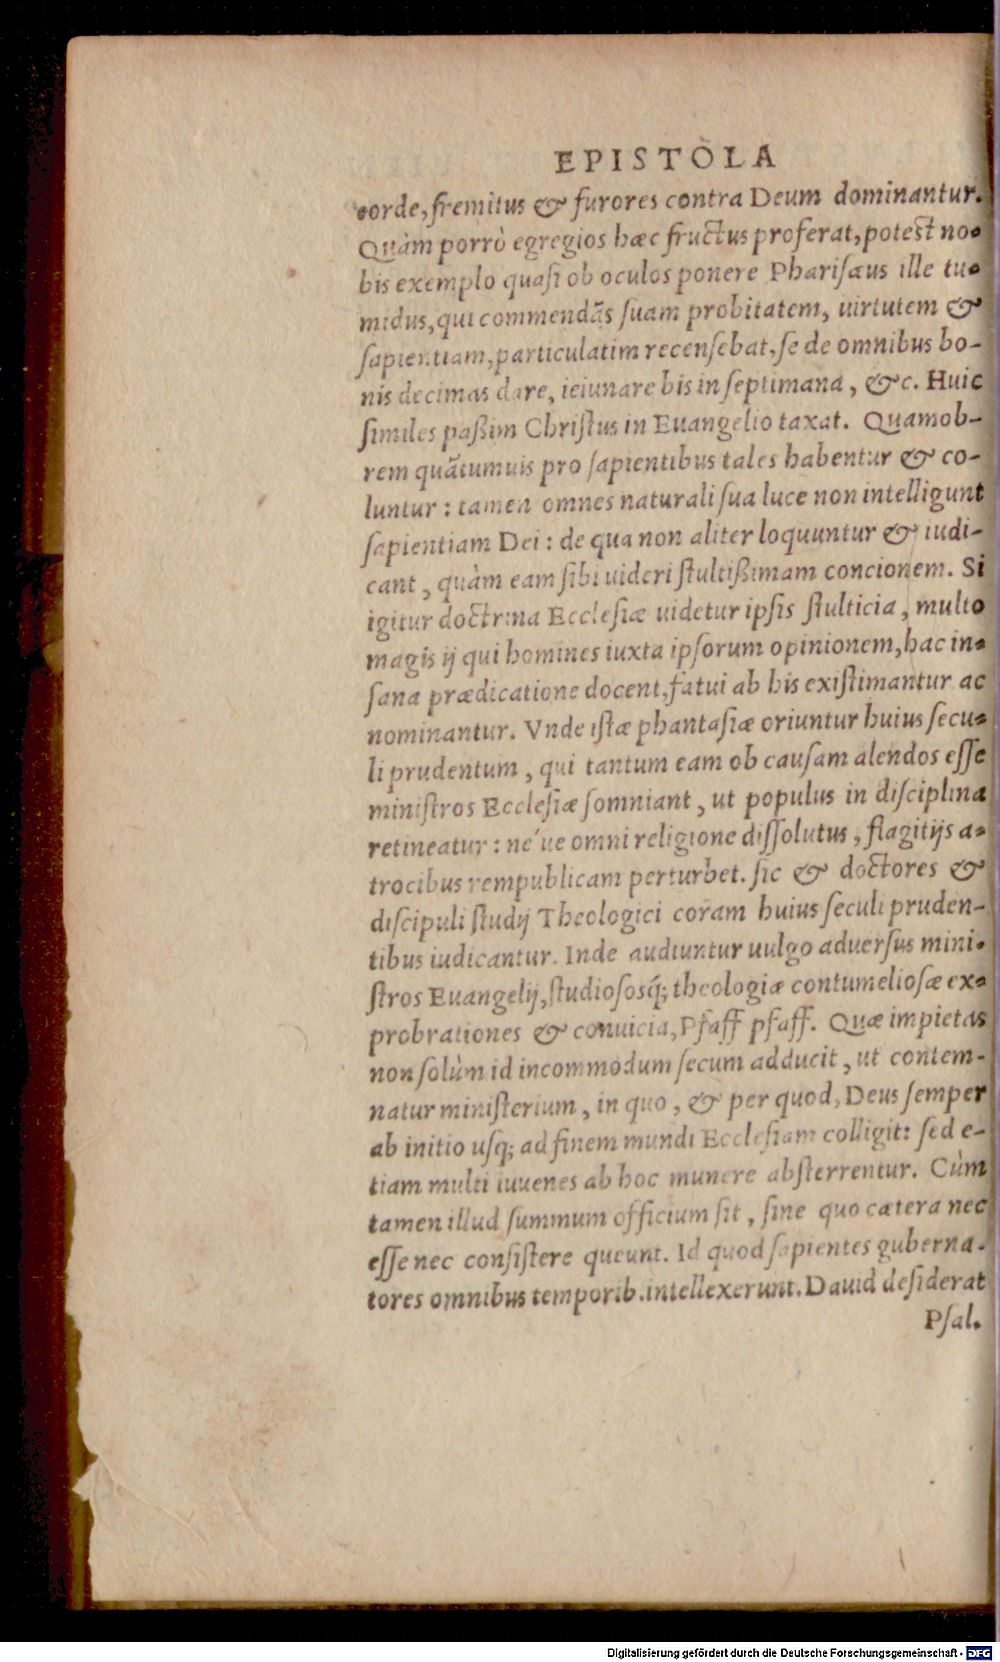 EPISTOLA
corde, fremitus & furores contra Deum dominantur.
Quàm porrò egregios hæc fructus proferat, potest no-
bis exemplo quasi ob oculos ponere Pharisæus ille tu-
midus, qui commendãs suam probitatem, uirtutem &
sapientiam, particulatim recensebat, se de omnibus bo-
nis decimas dare, ieiunare bis in septimana, &c. Huic
similes paßim Christus in Euangelio taxat. Quamob-
rem quãtumuis pro sapientibus tales habentur & co-
luntur: tamen omnes naturali sua luce non intelligunt
sapientiam Dei: de qua non aliter loquuntur & iudi-
cant, quàm eam sibi uideri stultißimam concionem. Si
igitur doctrina Ecclesiæ uidetur ipsis stulticia, multo
magis ij qui homines iuxta ipsorum opinionem, hac in-
sana prædicatione docent, fatui ab his existimantur ac
nominantur. Vnde istæ phantasiæ oriuntur huius secu-
li prudentum, qui tantum eam ob causam alendos esse
ministros Ecclesiæ somniant, ut populus in disciplina
retineatur: né ue omni religione dissolutus, flagitijs a-
trocibus rempublicam perturbet. sic & doctores &
discipuli studij Theologici coram huius seculi pruden-
tibus iudicantur. Inde audiuntur uulgo aduersus mini-
stros Euangelij, studiososq́; theologiæ contumeliosæ ex-
probrationes & conuicia, Pfaff pfaff. Quæ impietas
non solùm id incommodum secum adducit, ut contem-
natur ministerium, in quo, & per quod, Deus semper
ab initio usq; ad finem mundi Ecclesiam colligit: sed e-
tiam multi iuuenes ab hoc munere absterrentur. Cùm
tamen illud summum officium sit, sine quo cætera nec
esse nec consistere queunt. Id quod sapientes guberna-
tores omnibus temporib. intellexerunt. Dauid desiderat
Psal.
Digitalisierung gefördert durch die Deutsche Forschungsgemeinschaft - DFG